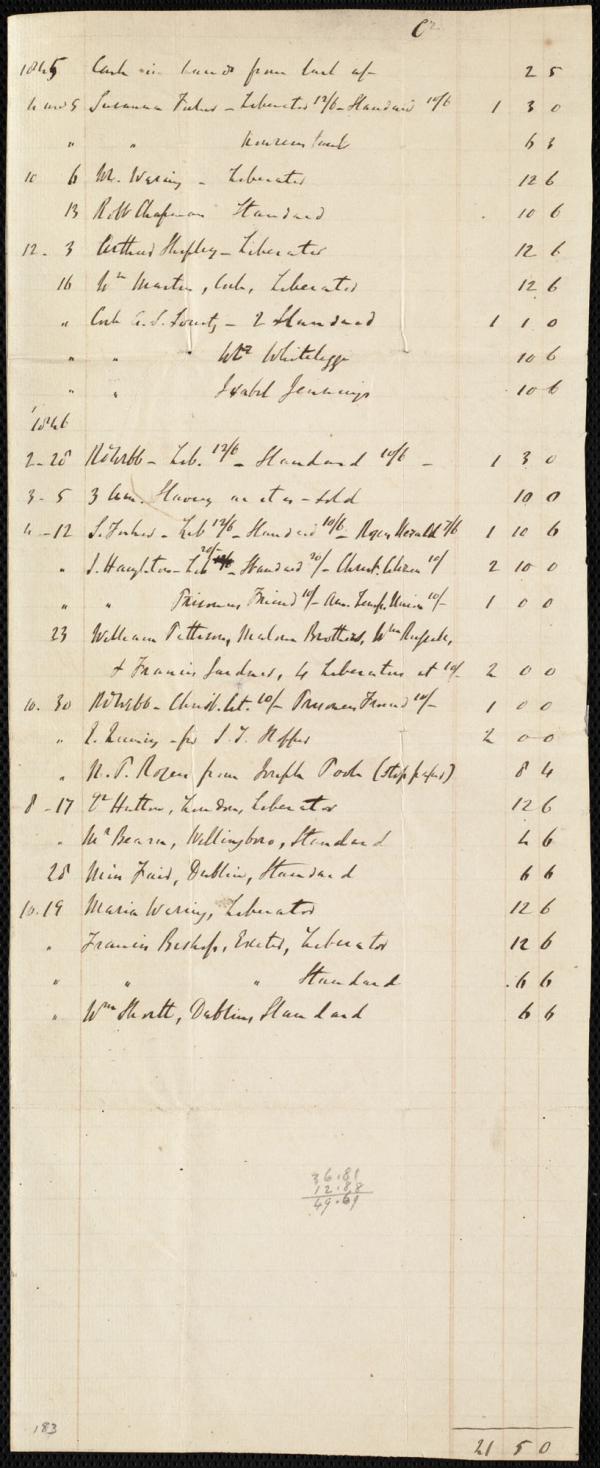 Cr
1845 Cash in hand from last a/c 2 5
4 mo 5 Susanna Fisher – Liberator 12/6 – Standard 10/6 1 3 0
" " 6 3
10 6 M. Waring – Liberator 12 6
13 Robt Chapman Standard 10 6
12 - 3 Liberator 12 6
16 Wm Martin, Cork, Liberator 12 6
" Cork A. S. Society – 2 Standard 1 1 0
" " " Whitelegge 10 6
" " Isabel Jennings 10 6
1846
2 - 28 RD Webb – Lib. 12/6 – Standard 10/6 – 1 3 0
3 - 5 3 Am. Slavery as it is – sold 10 0
4 - 12 S. Fisher – Lib 12/6 – Standard 10/6 – Herald 7/6 1 10 6
" J. Haughton – Lib 20/- – Standard 20/- – Christ. Citizen 10/ 2 10 0
" " Prisoners Friend 10/- – Am. Temp. Union 10/- 1 0 0
23 William Pattison, Malone Brothers, Wm
& Francis Gardner, 4 Liberators at 10/- 2 0 0
10. 30 RD Webb – Christ. Cit. 10/- Prisoners Friend 10/- 1 0 0
" – for 2 0 0
" N. P. Rogers from Joseph Poole (stop paper) 8 4
8 - 17 Dr Hutton, London, Liberator 12 6
" Mr Bearn, Wellingboro, Standard 4 6
28 Miss Dublin, Standard 6 6
10. 19 Maria Waring, Liberator 12 6
" Francis Bishop, Exeter, Liberator 12 6
" " " Standard 6 6
" Wm Shortt, Dublin, Standard 6 6
36.81
12.88
49.69
183
21 5 0